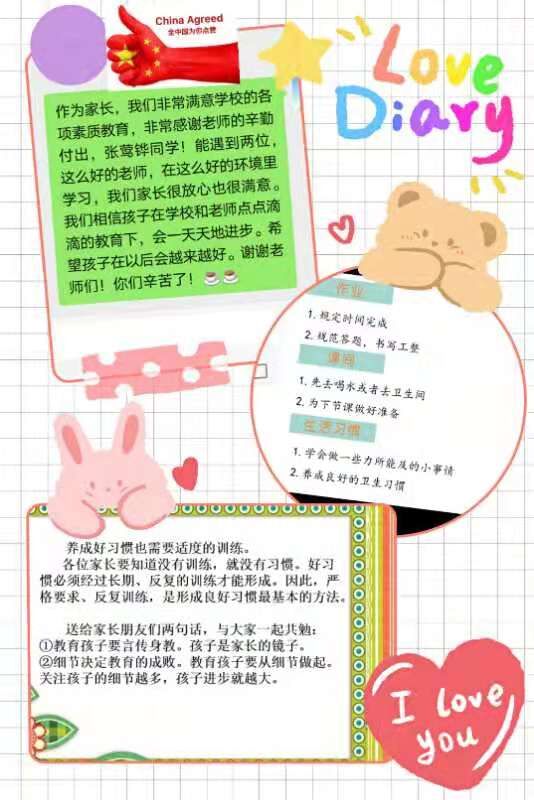 China Agreed
全中国为你点赞
Love
Diary
作为家长，我们非常满意学校的各
项素质教育，非常感谢老师的辛勤
付出，张莺铧同学！能遇到两位，
这么好的老师，在这么好的环境里
学习，我们家长很放心也很满意。
我们相信孩子在学校和老师点点滴
滴的教育下，会一天天地进步。希
望孩子在以后会越来越好。谢谢老
师们！你们辛苦了！
作业
1. 规定时间完成
2. 规范答题，书写工整
课间
1. 先去喝水或者去卫生间
2. 为下节课做好准备
生活习惯
1. 学会做一些力所能及的小事情
2. 养成良好的卫生习惯
养成好习惯也需要适度的训练。
各位家长要知道没有训练，就没有习惯。好习
惯必须经过长期、反复的训练才能形成。因此，严
格要求、反复训练，是形成良好习惯最基本的方法。
送给家长朋友们两句话，与大家一起共勉：
①教育孩子要言传身教。孩子是家长的镜子。
②细节决定教育的成败。教育孩子要从细节做起。
关注孩子的细节越多，孩子进步就越大。
I love
you